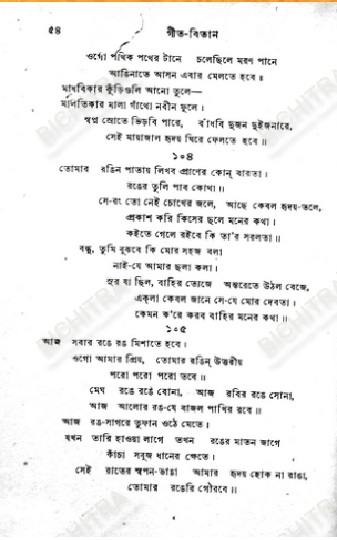 ৫৪ গীত-বিতান
ওগো পথিক পথের টানে চলেছিলে মরণ পানে
আঙিনাতে আসন এবার মেলতে হবে॥
মাধবিকার কুঁড়িগুলি আনো তুলে—
মালতিকার মালা গাঁথো নবীন ফুলে।
স্বপ্ন স্রোতে ভিড়বি পারে, বাঁধবি দুজন দুইজনারে,
সেই মায়াজাল হৃদয় ঘিরে ফেলতে হবে॥
১০৪
তোমার রঙিন পাতায় লিখব প্রাণের কোন্ বারতা।
রঙের তুলি পাব কোথা॥
সে-রং তো নেই চোখের জলে, আছে কেবল হৃদয়-তলে,
প্রকাশ করি কিসের ছলে মনের কথা।
কইতে গেলে রইবে কি তা'র সরলতা॥
বন্ধু, তুমি বুঝবে কি মোর সহজ বলা
নাই-যে আমার ছলা কলা।
সুর যা ছিল, বাহির ত্যেজে অন্তরেতে উঠল বেজে,
একলা কেবল জানে সে-যে মোর দেবতা।
কেমন ক'রে করব বাহির মনের কথা॥
১০৫
আজ সবার রঙে রঙ মিশাতে হবে।
ওগো আমার প্রিয়, তোমার রঙিন উত্তরীয়
পরো পরো পরো তবে॥
মেঘ রঙে রঙে বোনা, আজ রবির রঙে সোনা,
আজ আলোর রঙ-যে বাজল পাখির রবে॥
আজ রঙ-সাগরে তুফান ওঠে মেতে।
যখন তারি হাওয়া লাগে তখন রঙের মাতন জাগে
কাঁচা সবুজ ধানের ক্ষেতে।
সেই রাতের স্বপন-ভাঙা আমার হৃদয় হোক না রাঙা,
তোমার রঙেরি গৌরবে॥
BICHITRA